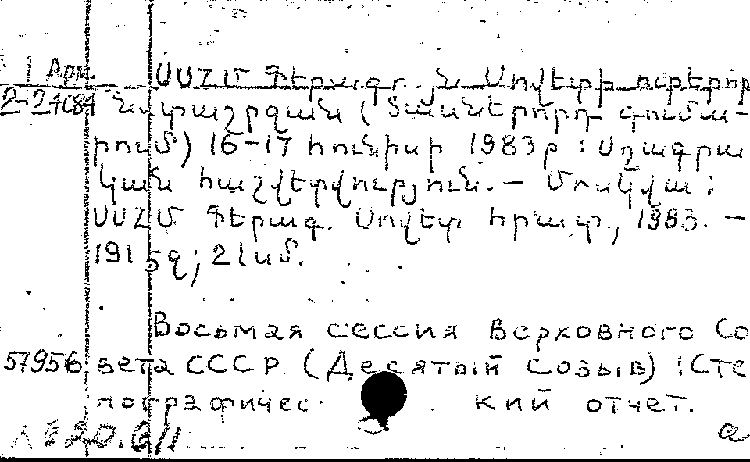 1 Արտ. ՍՍՀՄ Գերագ. ն Սովետի ութերորդ
2-27684 նստաշրջան (Տասներորդ գումա-
րում) 16-17 հունիսի 1983թ : Սղագրա
կան հաշվետվություն. — Մոսկվա :
ՍՍՀՄ Գերագ. Սովետ հրատ, 1983. —
191 էջ; 21 սմ.
Восьмая сессия Верховного Со
57956 вета СССР (Десятый созыв) : Сте
нографичес кий отчет.
а